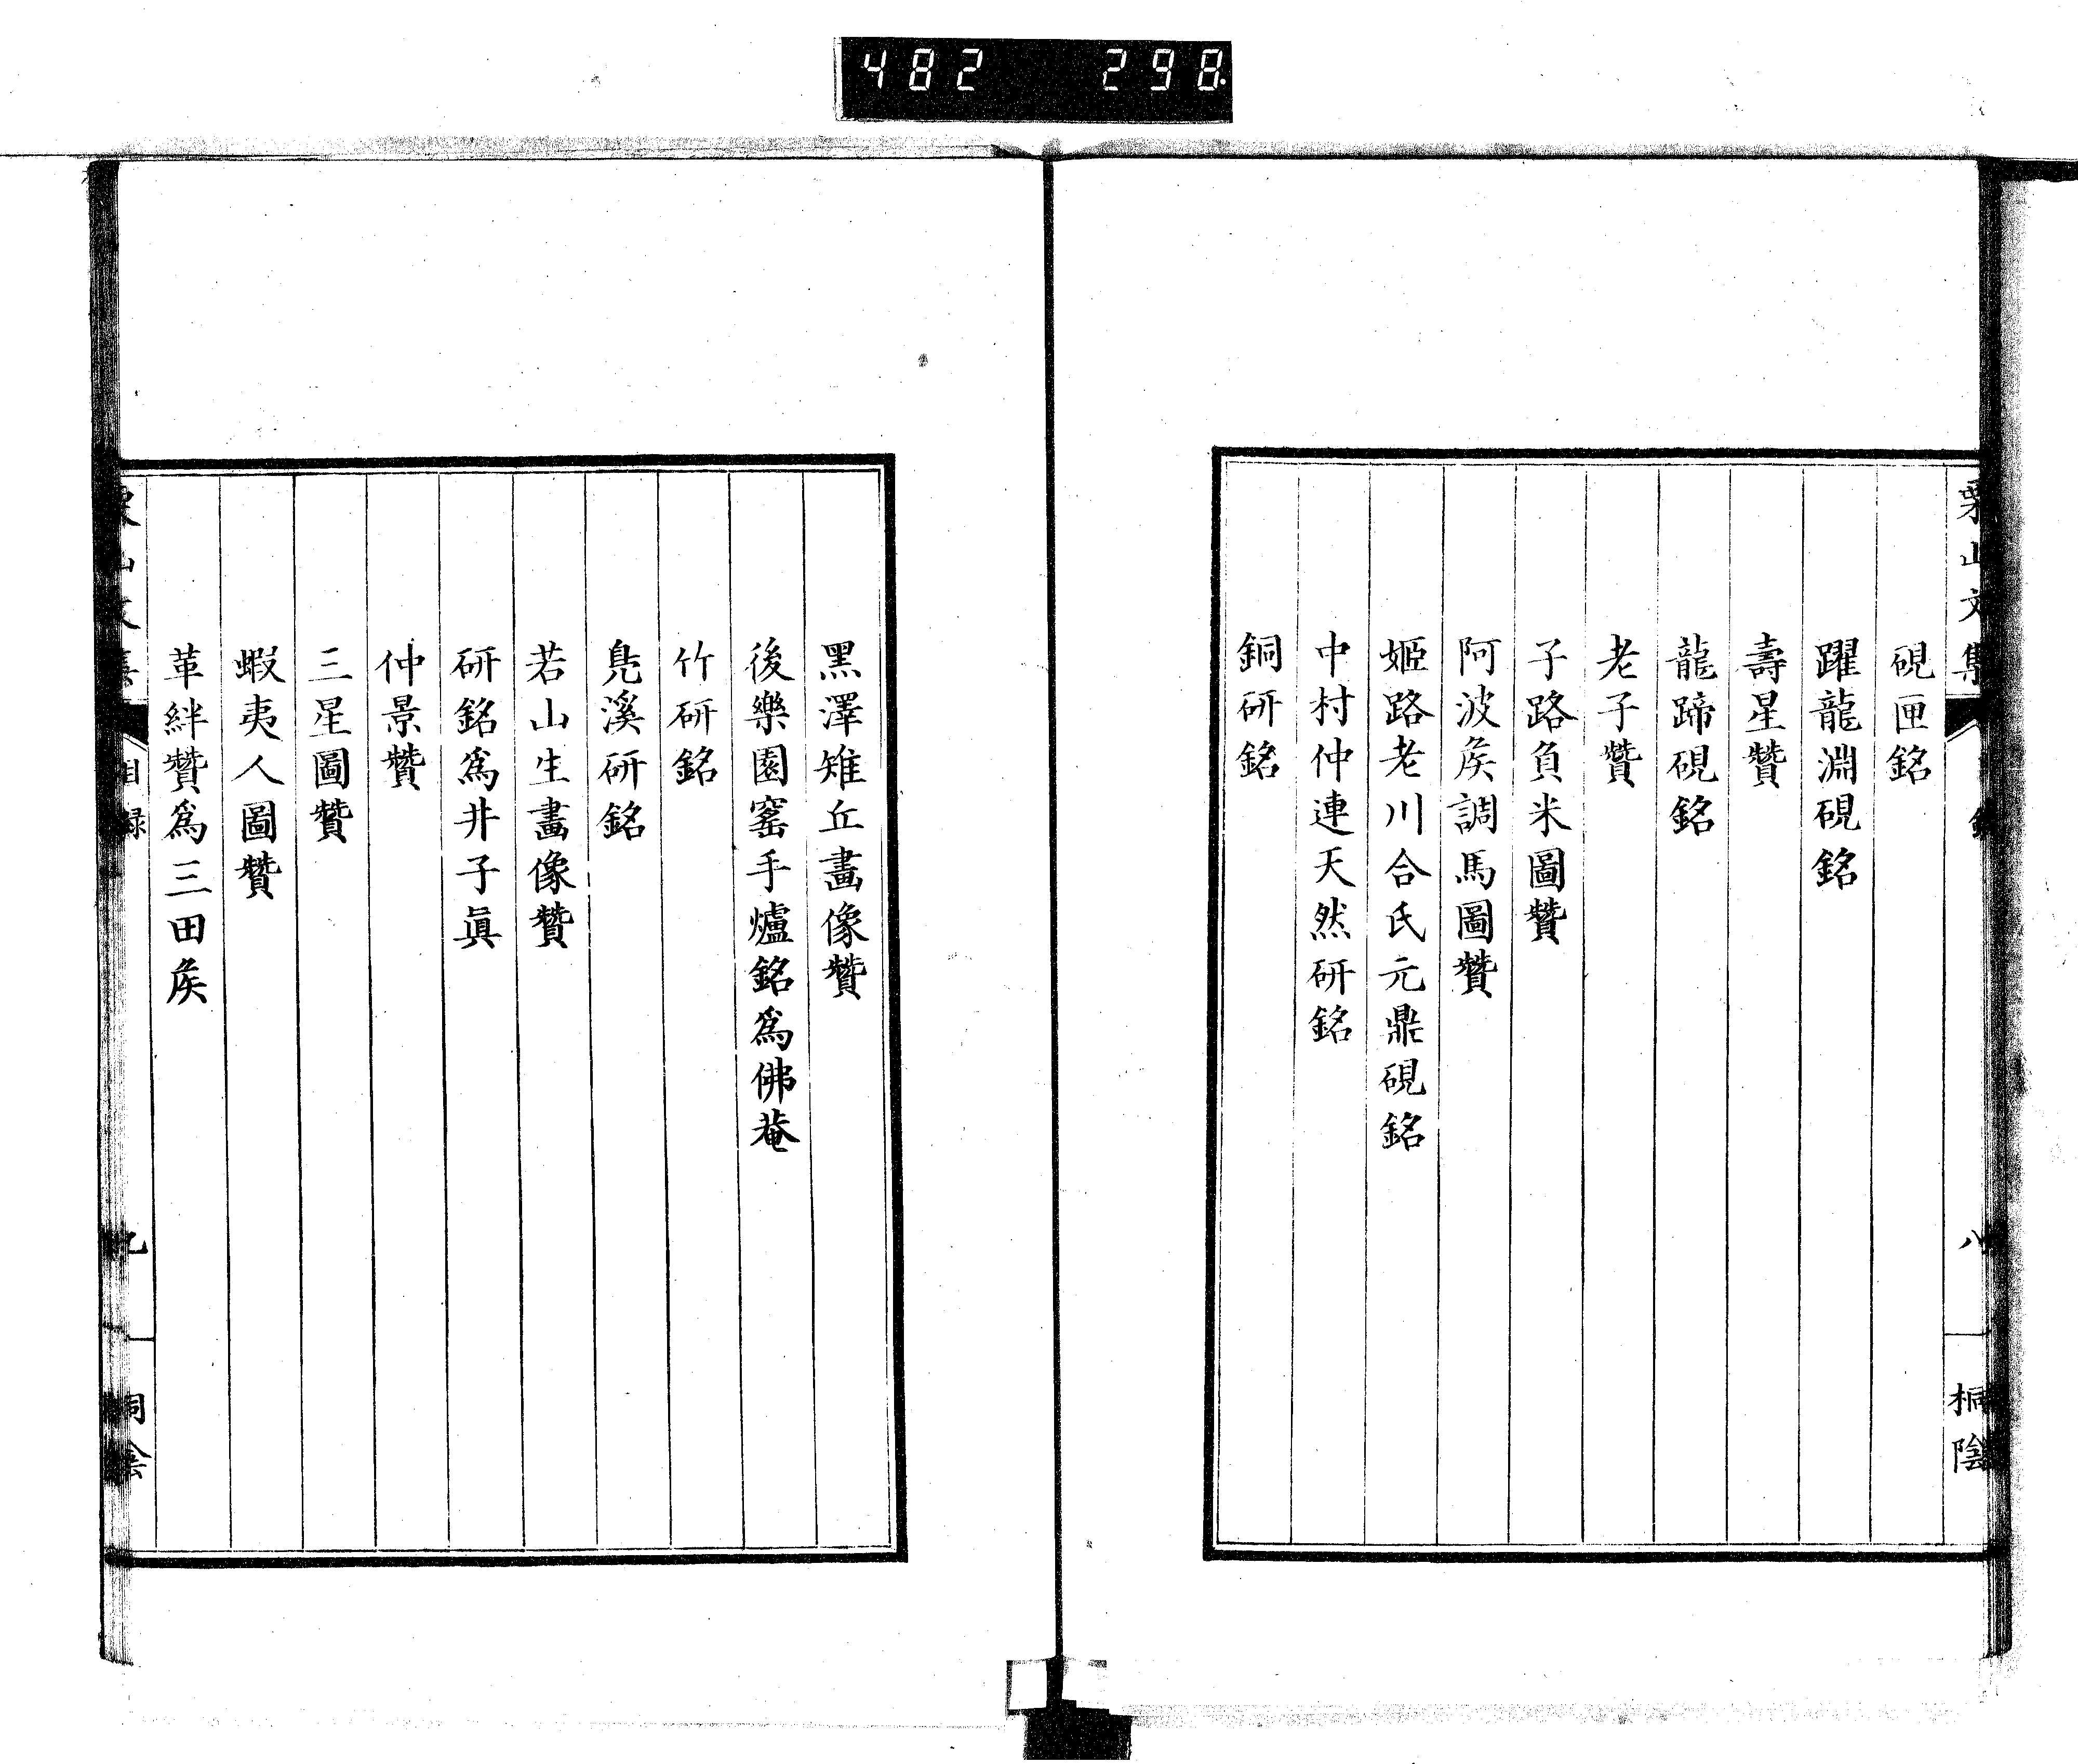 482 298
栗山文集
八
桐陰
硯匣銘
躍龍淵硯銘
壽星贊
龍蹄硯銘
老子贊
子路負米圖贊
阿波矦調馬圖贊
姬路老川合氏元鼎硯銘
中村仲連天然研銘
銅研銘
黑澤雉丘畫像贊
後樂園窰手爐銘爲佛菴
竹研銘
鳧溪研銘
若山生畫像贊
研銘爲井子眞
仲景贊
三星圖贊
蝦夷人圖贊
革絆贊爲三田矦
栗山文集
目録
九
桐陰